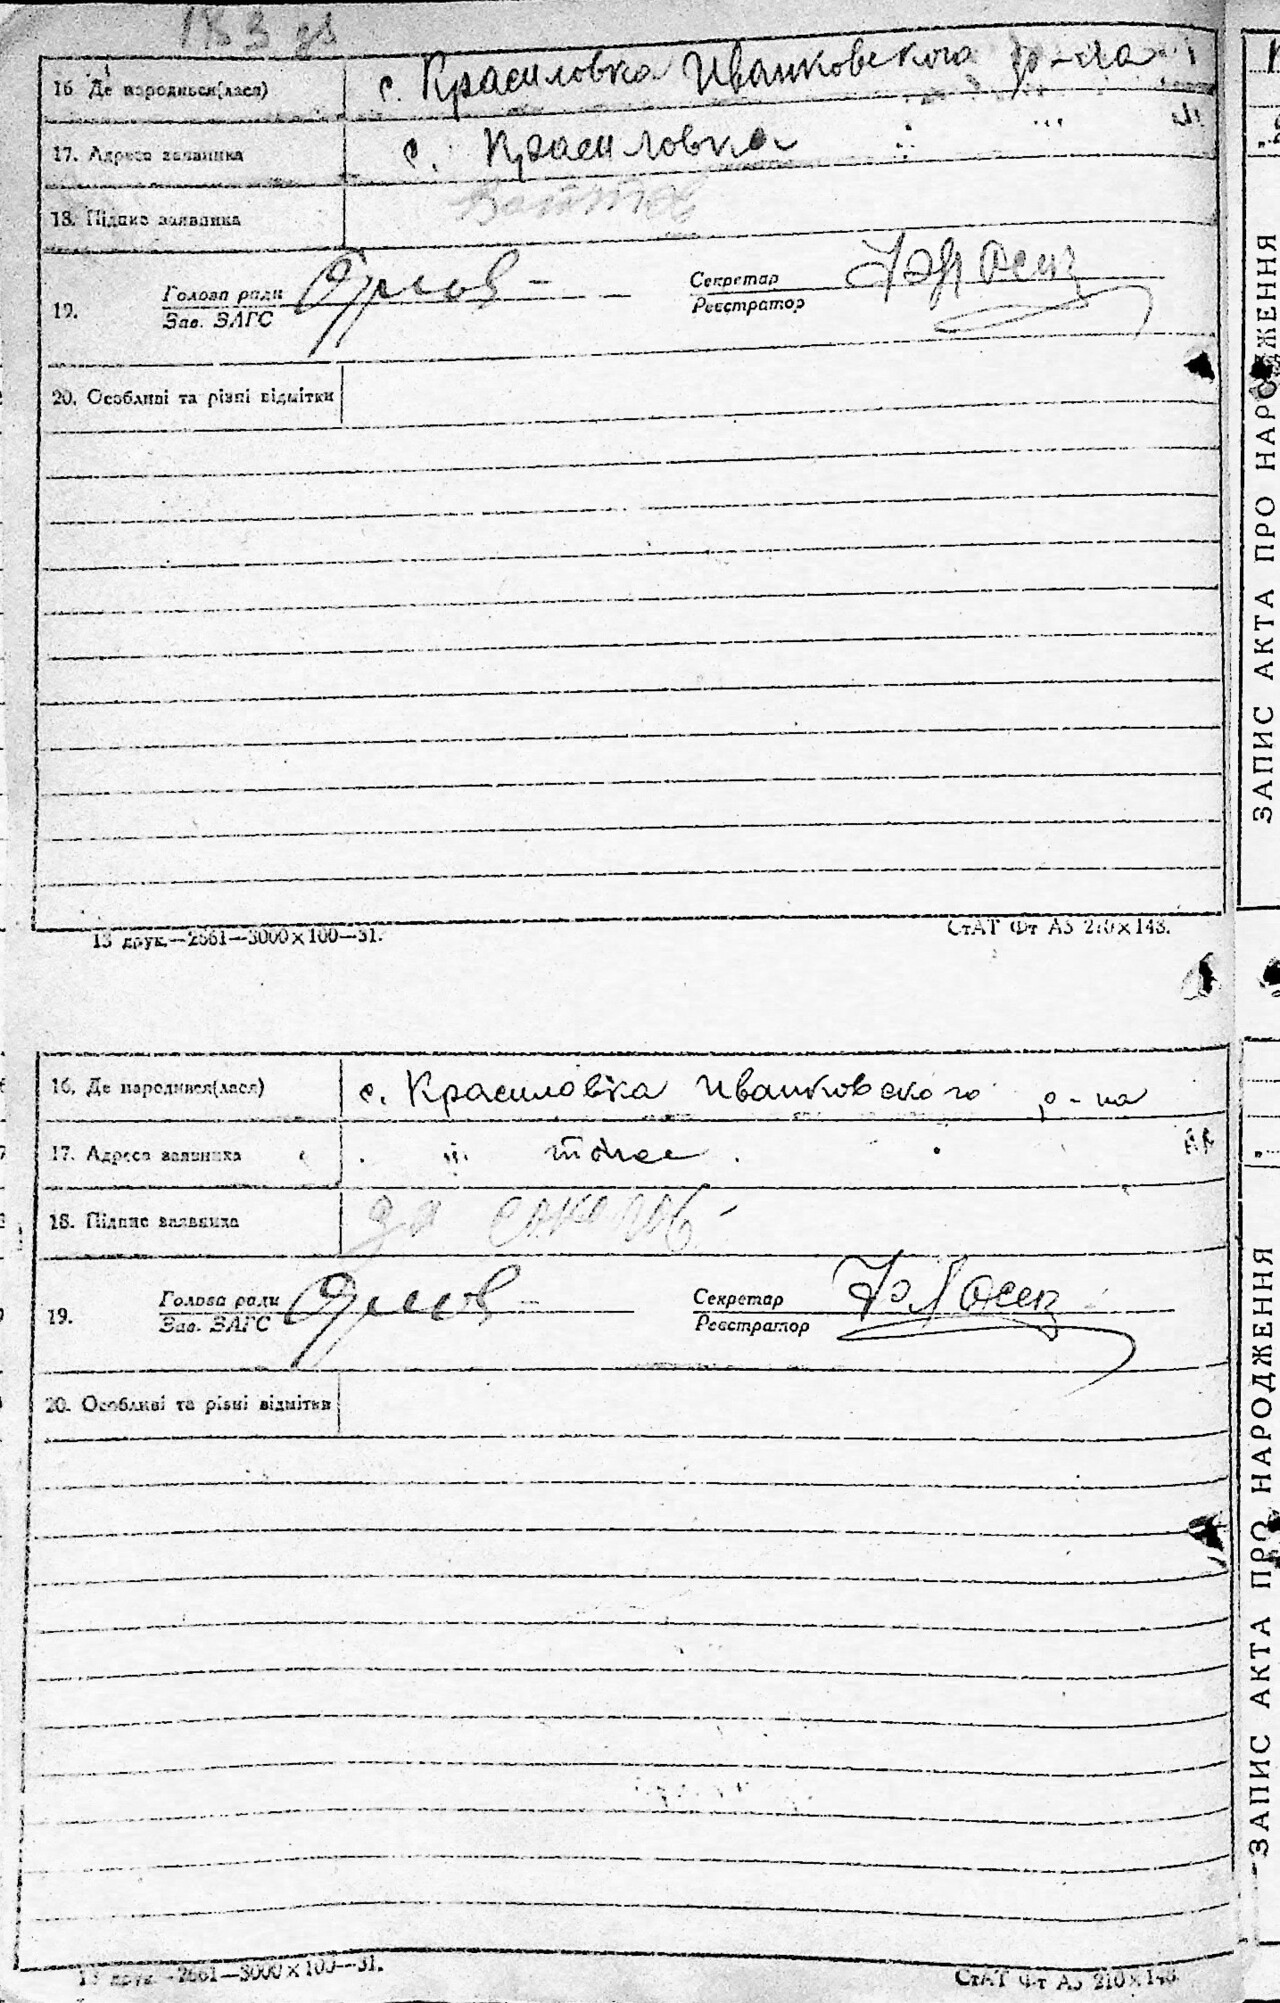 183
16. Де народився(лася) с. Красиловка Иванковского р-на
17. Адреса заявника с. Красиловка
18. Підпис заявника
19. Голова ради Секретар
Зав. ЗАГС Реєстратор
20. Особливі та різні відмітки
13 друк.—2661—3000×100—31. СтАТ Фт А5 210×148.
16. Де народився(лася) с. Красиловка Иванковского р-на
17. Адреса заявника тоже
18. Підпис заявника
19. Голова ради Секретар
Зав. ЗАГС Реєстратор
20. Особливі та різні відмітки
13 друк.—2661—3000×100—31. СтАТ Фт А5 210×148.
ЗАПИС АКТА ПРО НАРОДЖЕННЯ
ЗАПИС АКТА ПРО НАРОДЖЕННЯ